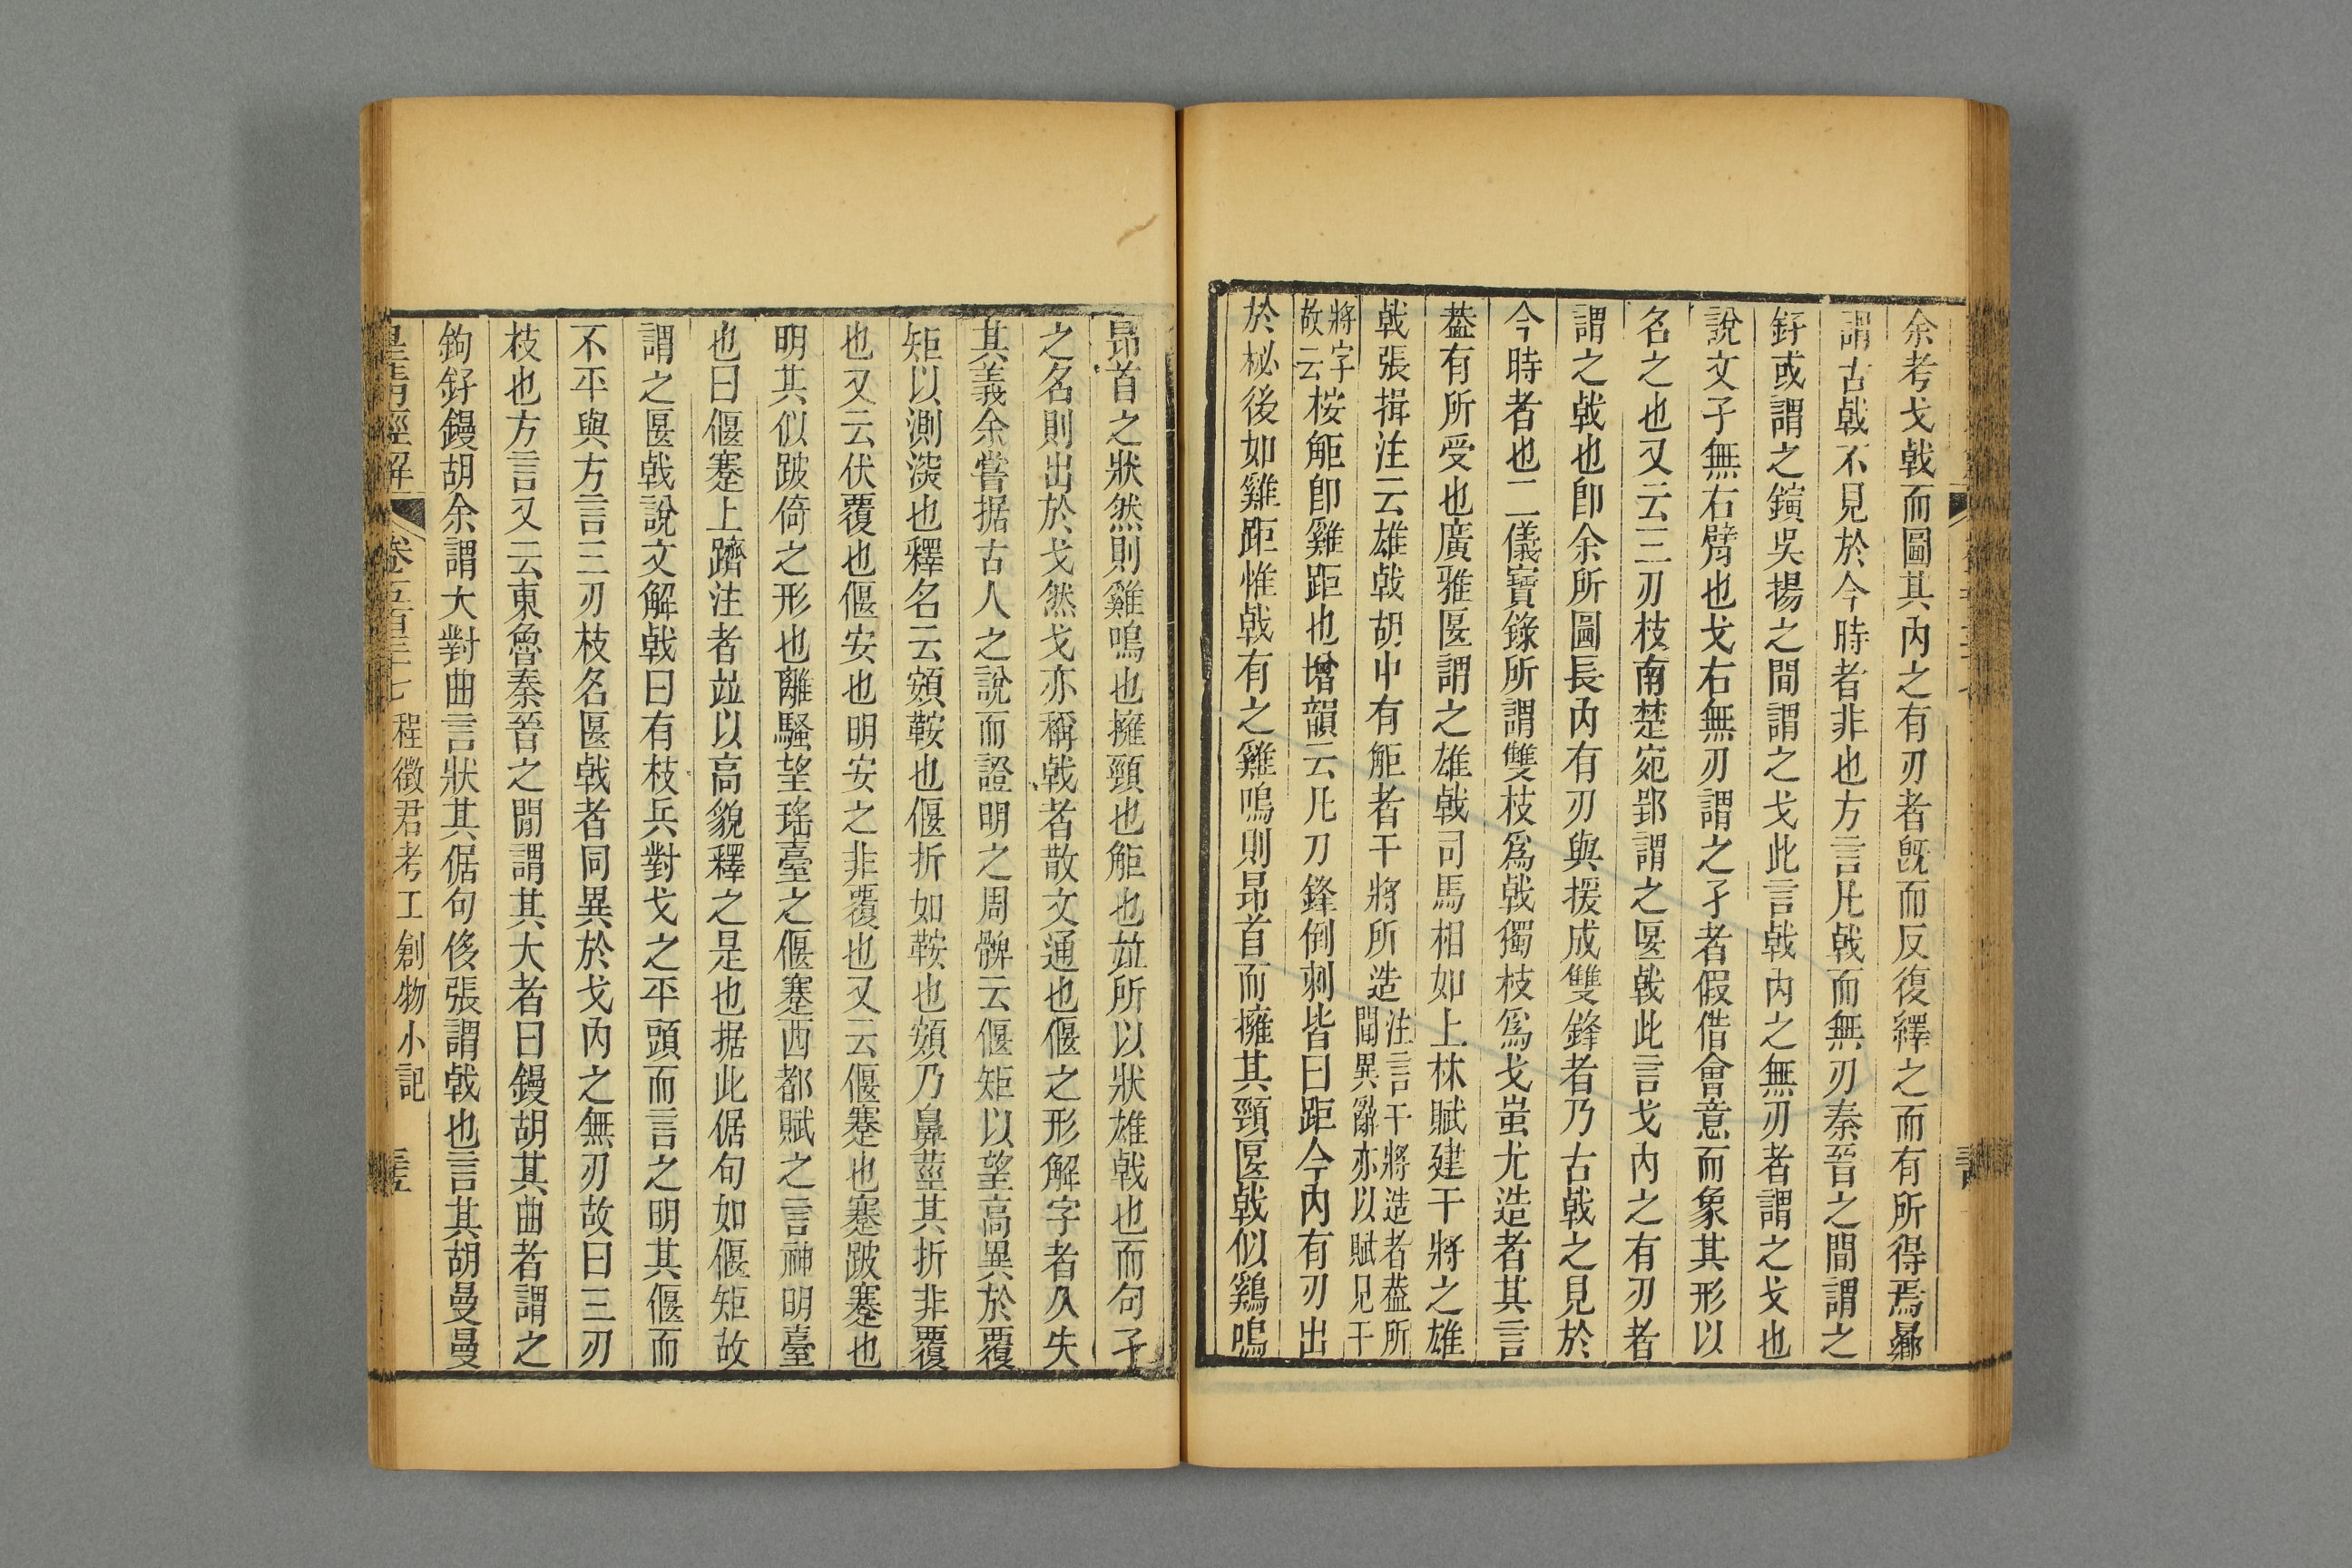 余考戈戟而圖其內之有刃者旣而反復繹之而有所得焉曏
謂古戟不見於今時者非也方言凡戟而無刃秦晉之間謂之
釨或謂之鏔吳揚之間謂之戈此言戟內之無刃者謂之戈也
說文孑無右臂也戈右無刃謂之孑者假借會意而象其形以
名之也又云三刃枝南楚宛郢謂之匽戟此言戈內之有刃者
謂之戟也卽余所圖長內有刃與援成雙鋒者乃古戟之見於
今時者也二儀寶錄所謂雙枝爲戟獨枝爲戈蚩尤造者其言
葢有所受也廣雅匽謂之雄戟司馬相如上林賦建干將之雄
戟張揖注云雄戟胡中有鮔者干將所造注言干將造者葢所
聞異辭亦以賦見干
將字
故云桉鮔卽雞距也增韻云凡刀鋒倒刺皆曰距今內有刃出
於柲後如雞距惟戟有之雞鳴則昂首而擁其頸匽戟似鷄鳴
昂首之狀然則雞鳴也擁頸也鮔也竝所以狀雄戟也而句孑
之名則出於戈然戈亦稱戟者散文通也偃之形解字者久失
其義余嘗据古人之說而證明之周髀云偃矩以望高異於覆
矩以測淡也釋名云頞鞍也偃折如鞍也頞乃鼻莖其折非覆
也又云伏覆也偃安也明安之非覆也又云偃蹇也蹇跛蹇也
明其似跛倚之形也離騷望瑤臺之偃蹇西都賦之言神明臺
也曰偃蹇上躋注者竝以高貌釋之是也据此倨句如偃矩故
謂之匽戟說文解戟曰有枝兵對戈之平頭而言之明其偃而
不平與方言三刃枝名匽戟者同異於戈內之無刃故曰三刃
枝也方言又云東魯秦晉之閒謂其大者曰鏝胡其曲者謂之
鉤釨鏝胡余謂大對曲言狀其倨句侈張謂戟也言其胡曼曼
皇淸經解 卷五百三十七 程徵君考工創物小記 三五